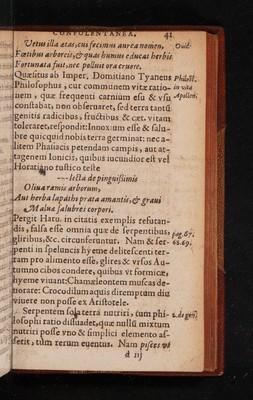 CONVOLENTANEA. 42
Vetus illa ætas, cui fecimus aurea nomen, Ouid.
Fœtibus arboreis, & quas humus educat herbis
Fortunata fuit, nec polluit ora cruore.
Quæsitus ab Imper. Domitiano Tyaneus Philost.
Philosophus, cur communem vitæ ratio- in vita
nem, quæ frequenti carnium esu & vsu Apollon.
constabat, non obseruaret, sed terra tantū
genitis radicibus, fructibus & cæt. vitam
toleraret, respondit: Innoxium esse & salu-
bre quicquid nobis terra germinat: nec a-
litem Phasiacis petendam campis, aut at-
tagenem Ionicis, quibus iucundior est vel
Horatiano rustico teste
---lecta de pinguissimis
Oliua ramis arborum,
Aut herba lapathi prata amantis, & graui
Maluæ salubres corpori.
Pergit Haru. in citatis exemplis refutan-
dis, falsa esse omnia quæ de serpentibus, pag. 67.
gliribus, &c. circunferuntur. Nam & ser- 68. 69.
penti in speluncis hyeme delitescenti ter-
ram pro alimento esse, glires & vrsos Au-
tumno cibos condere, quibus vt formicæ,
hyeme viuant: Chamæleontem muscas de-
uorare: Crocodilum aquis diremptum diu
viuere non posse ex Aristotele.
Serpentem sola terra nutriri, tum phi-
losophi ratio dissuadet, quæ nullū mixtum
nutriri posse vno & simplici elemento as-
serit, tùm rerum euentus. Nam pisces vt
d iij